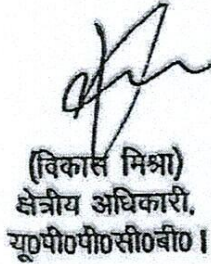 (विकास मिश्रा)
क्षेत्रीय अधिकारी,
यू0पी0पी0सी0बी0।